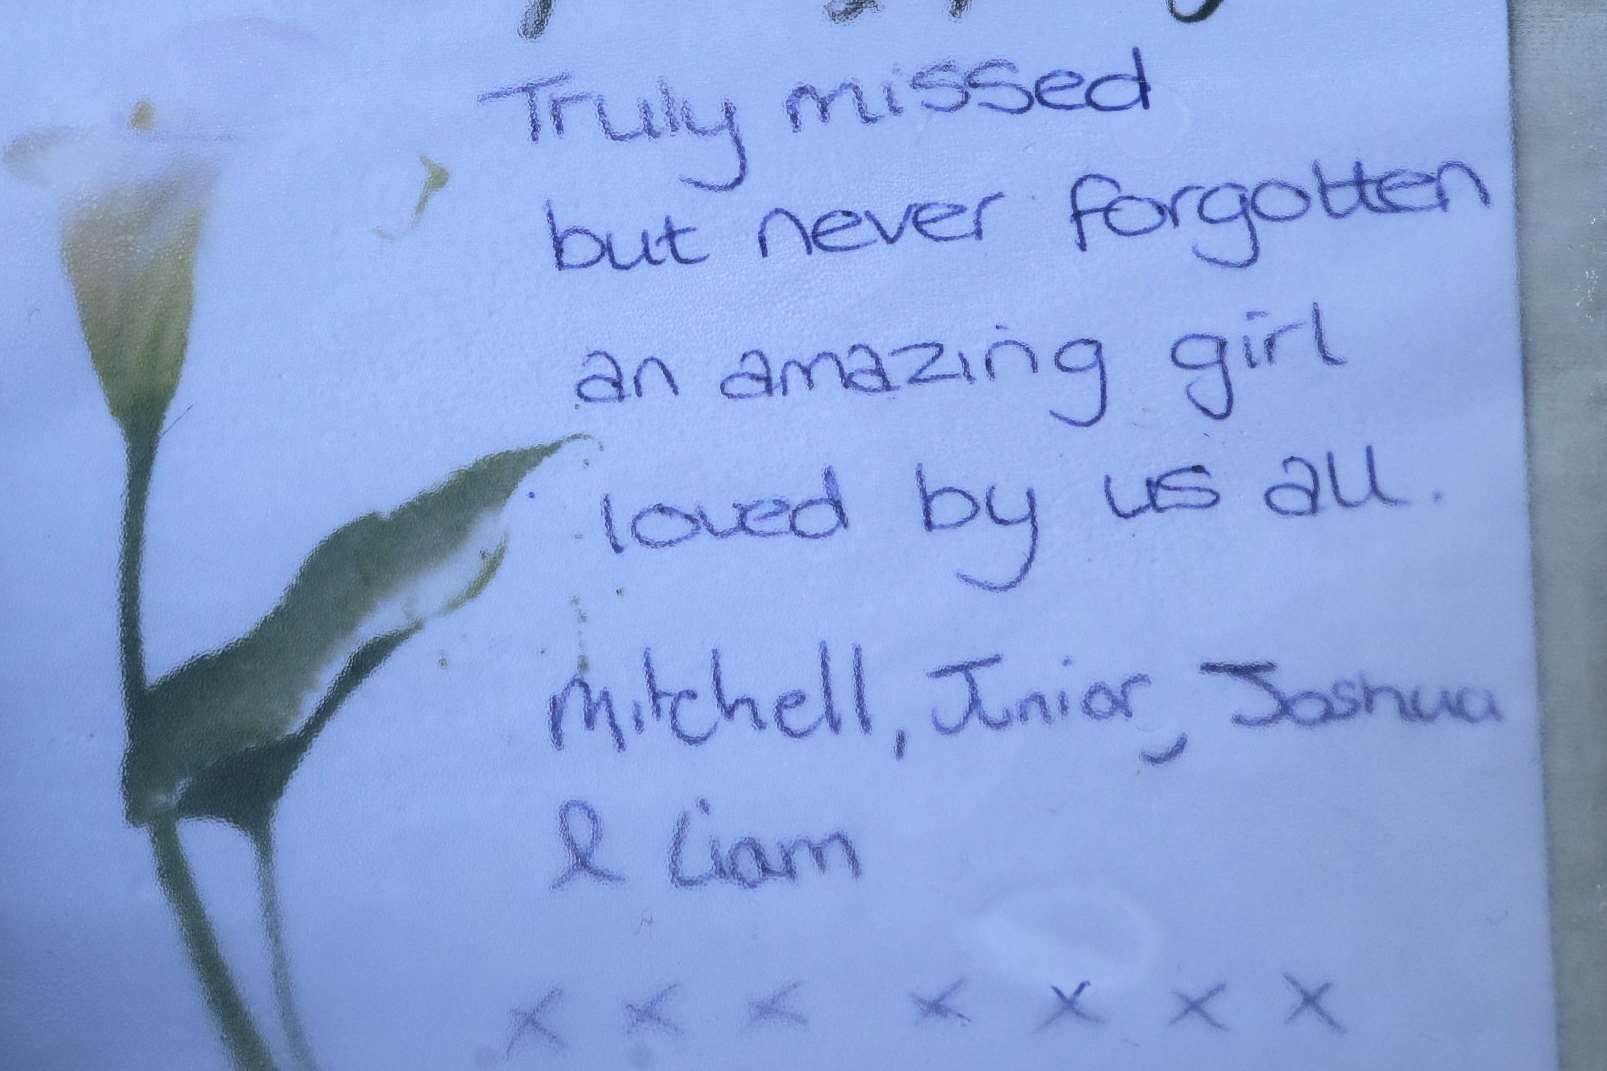 Truly missed
but never forgotten
an amazing girl
loved by us all.
Mitchell, Junior, Joshua
& Liam
x x x x x x x